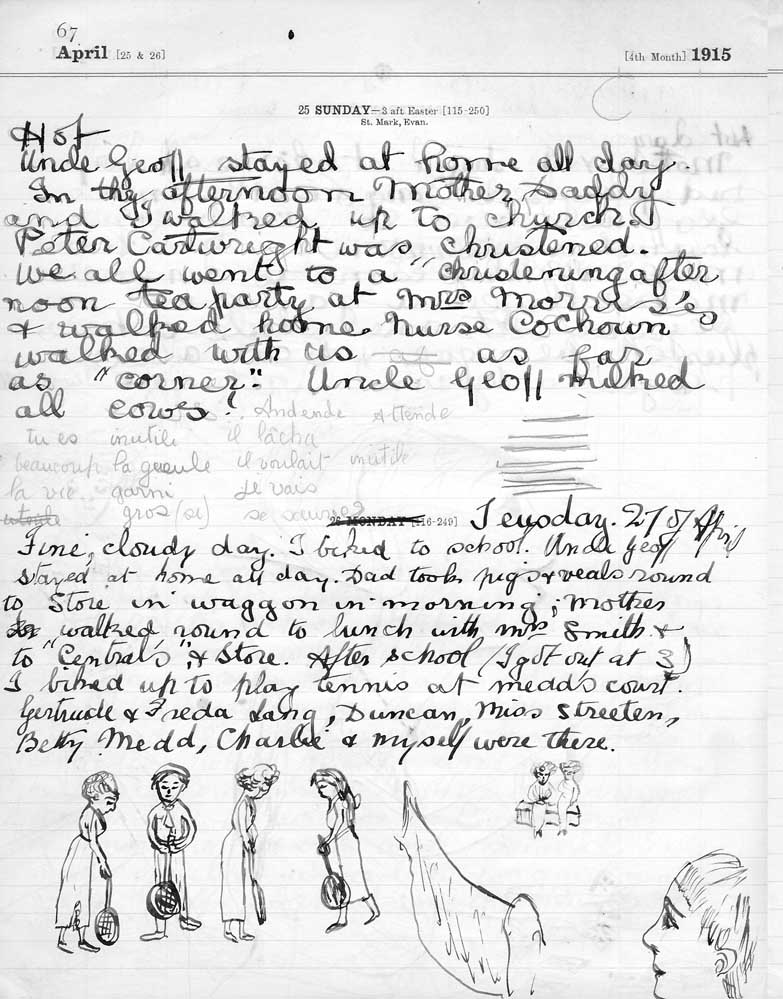 67
April [25 & 26] [4th Month] 1915
25 SUNDAY—3 aft Easter [115-250]
St. Mark, Evan.
Hot
Uncle Geoff stayed at home all day.
In the afternoon Mother, Daddy
and I walked up to church.
Peter Cartwright was christened.
We all went to a "christening after
noon tea party at Mrs Morris's
& walked home. Nurse Cochown
walked with us as far
as "corner". Uncle Geoff milked
all cows!
Andende Attende
tu es inutile il lâcha
beaucoup la gueule il voulait inutile
la vie garni je vais
gros (se) se sauver
26 MONDAY [116-249] Teusday. 27 of April
Fine, cloudy day. I biked to school. Uncle Geoff
stayed at home all day. Dad took pigs & veals round
to Store in waggon in morning; Mother
walked round to lunch with Mrs Smith &
to "Central's" & Store. After school (I got out at 3)
I biked up to play tennis at Medd's court.
Gertrude & Freda Lang, Duncan, Miss Streeten,
Betty Medd, Charlie & myself were there.